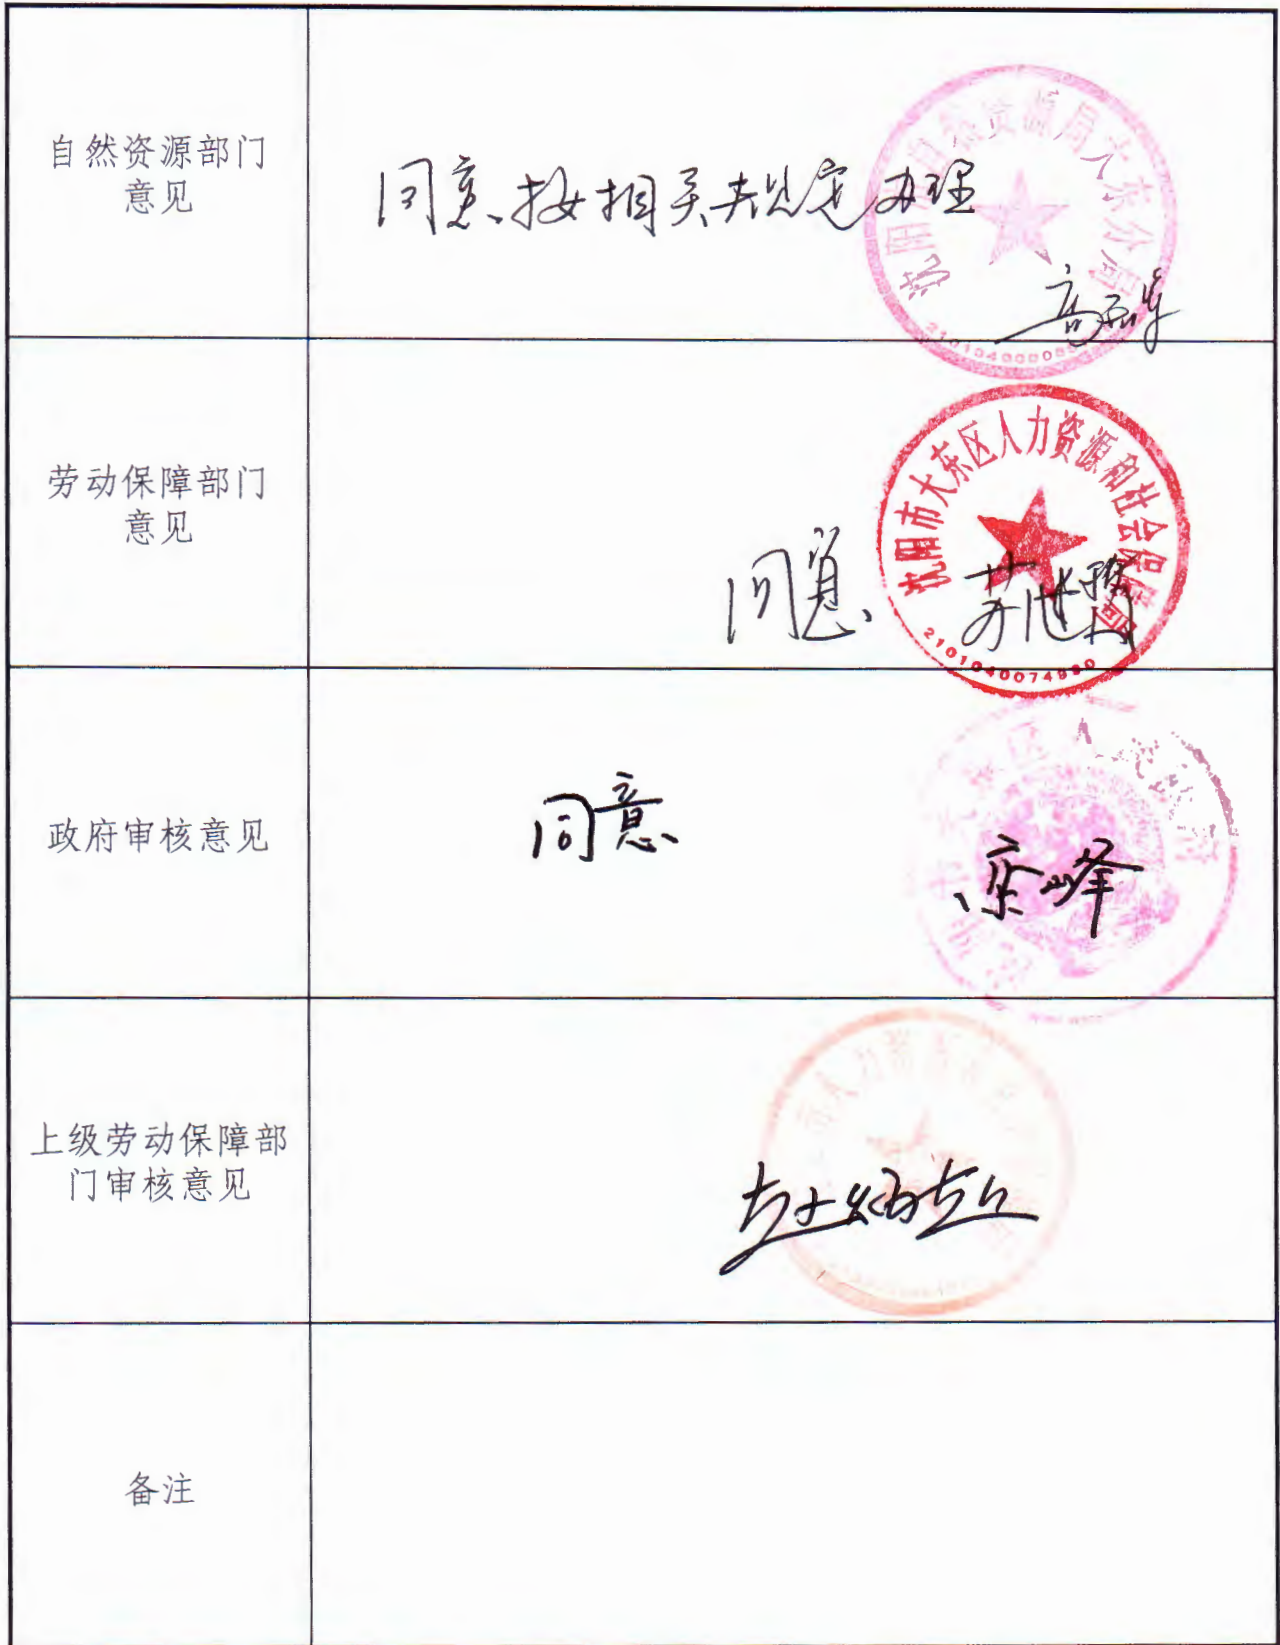 自然资源部门
意见
同意、按相关规定办理
沈阳市自然资源局大东分局
劳动保障部门
意见
沈阳市大东区人力资源和社会保障局
2101040074990
同意、
政府审核意见
同意、
栾峰
上级劳动保障部
门审核意见
备注